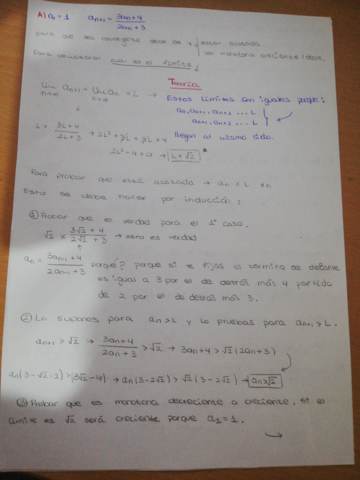 A) a₁ = 1   aₙ₊₁ = (3aₙ+4)/(2aₙ+3)
para que sea convergente debe de → estar acotada
ser monótona creciente / decre.
Para demostrar cual es el límite:
Teoría
Lim aₙ₊₁ = Lim aₙ = L → Estos límites son iguales porque:
n→∞ n→∞
aₙ, aₙ₊₁, aₙ₊₂ ... L
aₙ₊₁, aₙ₊₂ ... L
llegan al mismo sitio.
L = (3L+4)/(2L+3) → 2L²+3L = 3L+4
2L²-4=0 → L=√2 *
Para probar que está acotada → aₙ < L ∀n
Esto se debe hacer por inducción:
① Probar que es verdad para el 1º caso.
√2 < (3√2+4)/(2√2+3) → esto es verdad
aₙ = (3aₙ₋₁+4)/(2aₙ₋₁+3) porqué? porque si te fijas el término de delante
es igual a 3 por el de detrás más 4 partido
de 2 por el de detrás más 3.
② Lo supones para aₙ>L y lo pruebas para aₙ₊₁ > L.
aₙ₊₁ > √2 → (3aₙ+4)/(2aₙ+3) > √2 → 3aₙ+4 > √2(2aₙ+3)
aₙ(3-√2·2) > (3√2-4) → aₙ(3-2√2) > √2(3-2√2) → aₙ>√2
③ Probar que es monótona decreciente o creciente. Si el
límite es √2 será creciente porque a₁=1.
→